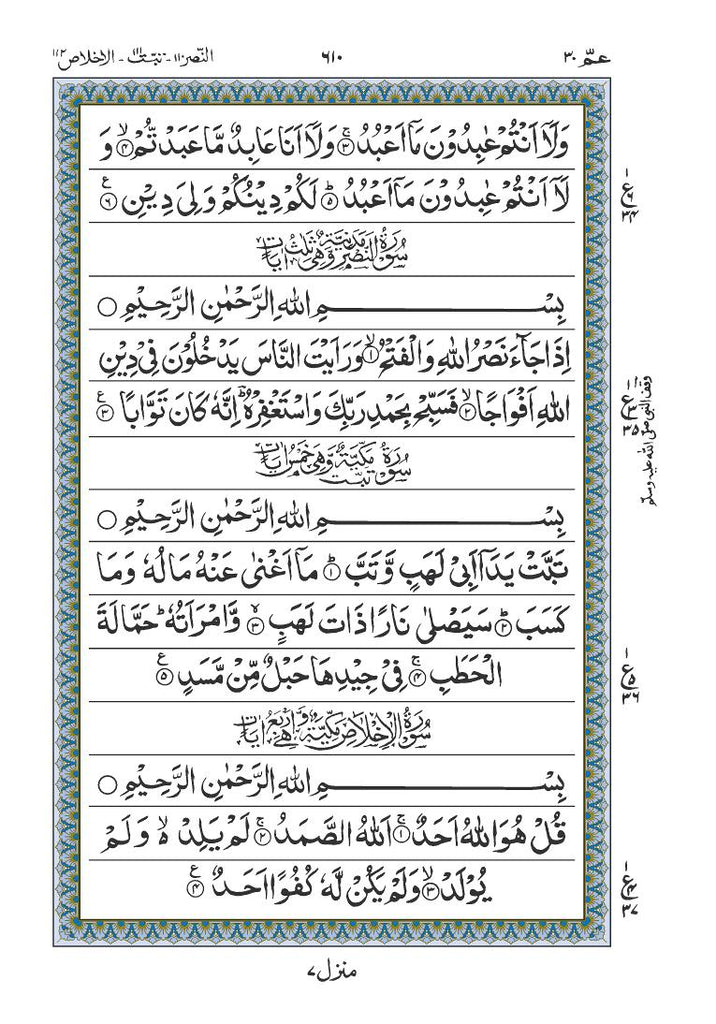 عمّ ٣٠
٦١٠
النّصر ١١٠ - تبّت ١١١ - الاخلاص ١١٢
وَلَاۤ اَنْتُمْ عٰبِدُوْنَ مَاۤ اَعْبُدُ ۚ﴿۳﴾ وَلَاۤ اَنَا عَابِدٌ مَّا عَبَدْتُّمْ ۙ﴿۴﴾ وَ
لَاۤ اَنْتُمْ عٰبِدُوْنَ مَاۤ اَعْبُدُ ؕ﴿۵﴾ لَكُمْ دِيْنُكُمْ وَلِيَ دِيْنِ ﴿۶﴾ ع
سُوْرَةُ النَّصْرِ مَدَنِيَّةٌ وَّهِيَ ثَلٰثُ اٰيَاتٍ
بِسْمِ اللهِ الرَّحْمٰنِ الرَّحِيْمِ ○
اِذَا جَآءَ نَصْرُ اللهِ وَالْفَتْحُ ۙ﴿۱﴾ وَرَاَيْتَ النَّاسَ يَدْخُلُوْنَ فِيْ دِيْنِ
اللهِ اَفْوَاجًا ۙ﴿۲﴾ فَسَبِّحْ بِحَمْدِ رَبِّكَ وَاسْتَغْفِرْهُ ؕ اِنَّهٗ كَانَ تَوَّابًا ﴿۳﴾ ع
سُوْرَةُ تَبَّتْ مَكِّيَّةٌ وَّهِيَ خَمْسُ اٰيَاتٍ
بِسْمِ اللهِ الرَّحْمٰنِ الرَّحِيْمِ ○
تَبَّتْ يَدَاۤ اَبِيْ لَهَبٍ وَّتَبَّ ؕ﴿۱﴾ مَاۤ اَغْنٰى عَنْهُ مَالُهٗ وَمَا
كَسَبَ ؕ﴿۲﴾ سَيَصْلٰى نَارًا ذَاتَ لَهَبٍ ۚۖ﴿۳﴾ وَّامْرَاَتُهٗ ؕ حَمَّالَةَ
الْحَطَبِ ۚ﴿۴﴾ فِيْ جِيْدِهَا حَبْلٌ مِّنْ مَّسَدٍ ﴿۵﴾ ع
سُوْرَةُ الْاِخْلَاصِ مَكِّيَّةٌ وَّهِيَ اَرْبَعُ اٰيَاتٍ
بِسْمِ اللهِ الرَّحْمٰنِ الرَّحِيْمِ ○
قُلْ هُوَ اللهُ اَحَدٌ ۚ﴿۱﴾ اَللهُ الصَّمَدُ ۚ﴿۲﴾ لَمْ يَلِدْ ۙ۬ وَلَمْ
يُوْلَدْ ۙ﴿۳﴾ وَلَمْ يَكُنْ لَّهٗ كُفُوًا اَحَدٌ ﴿۴﴾ ع
ع ٦ ٣٤
ع ٣ ٣٥
وقف النبی صلی الله علیه وسلم
ع ٥ ٣٦
ع ٤ ٣٧
منزل ٧